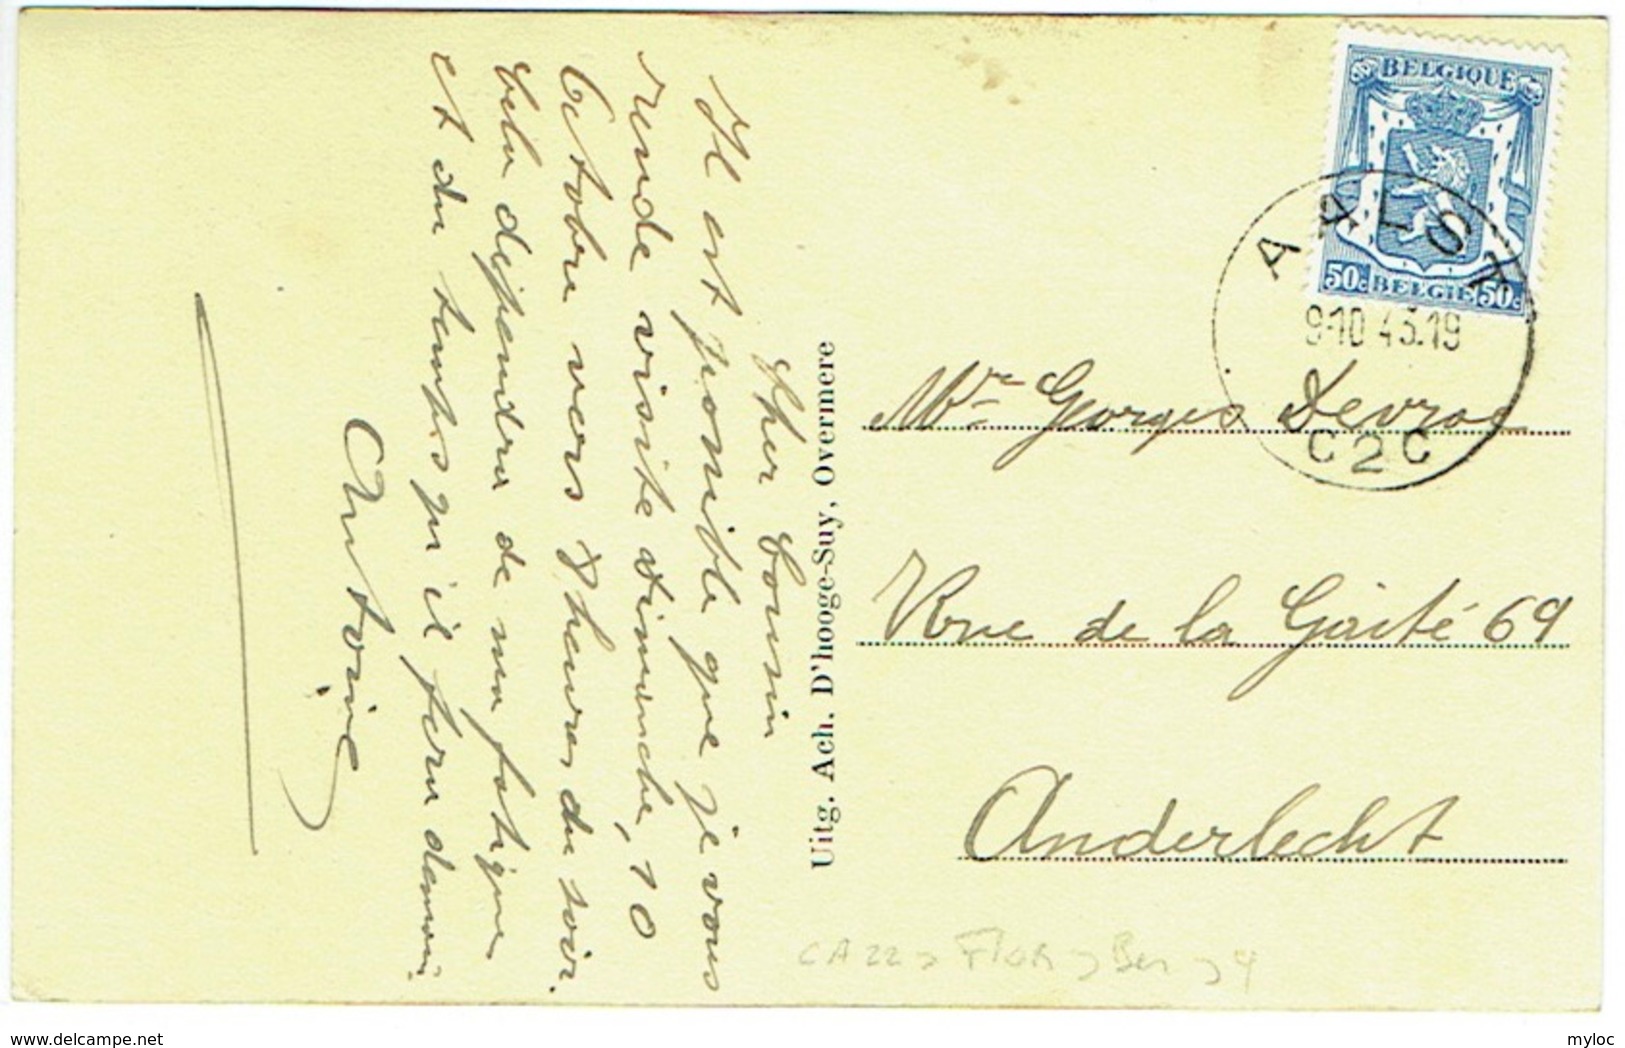 Cher Cousin
Il est possible que je vous
rende visite dimanche, 10
Octobre vers 8 heures du soir.
Cela dépendra de ma fatigue
et du temps qu'il fera demain.
Antoine
Uitg. Ach. D'hooge-Suy, Overmere
BELGIQUE
50c BELGIE 50c
AALST
9-10 43.19
C2C
Mr Georges Devroe
Rue de la Gaité 69
Anderlecht
www.delcampe.net
myloc